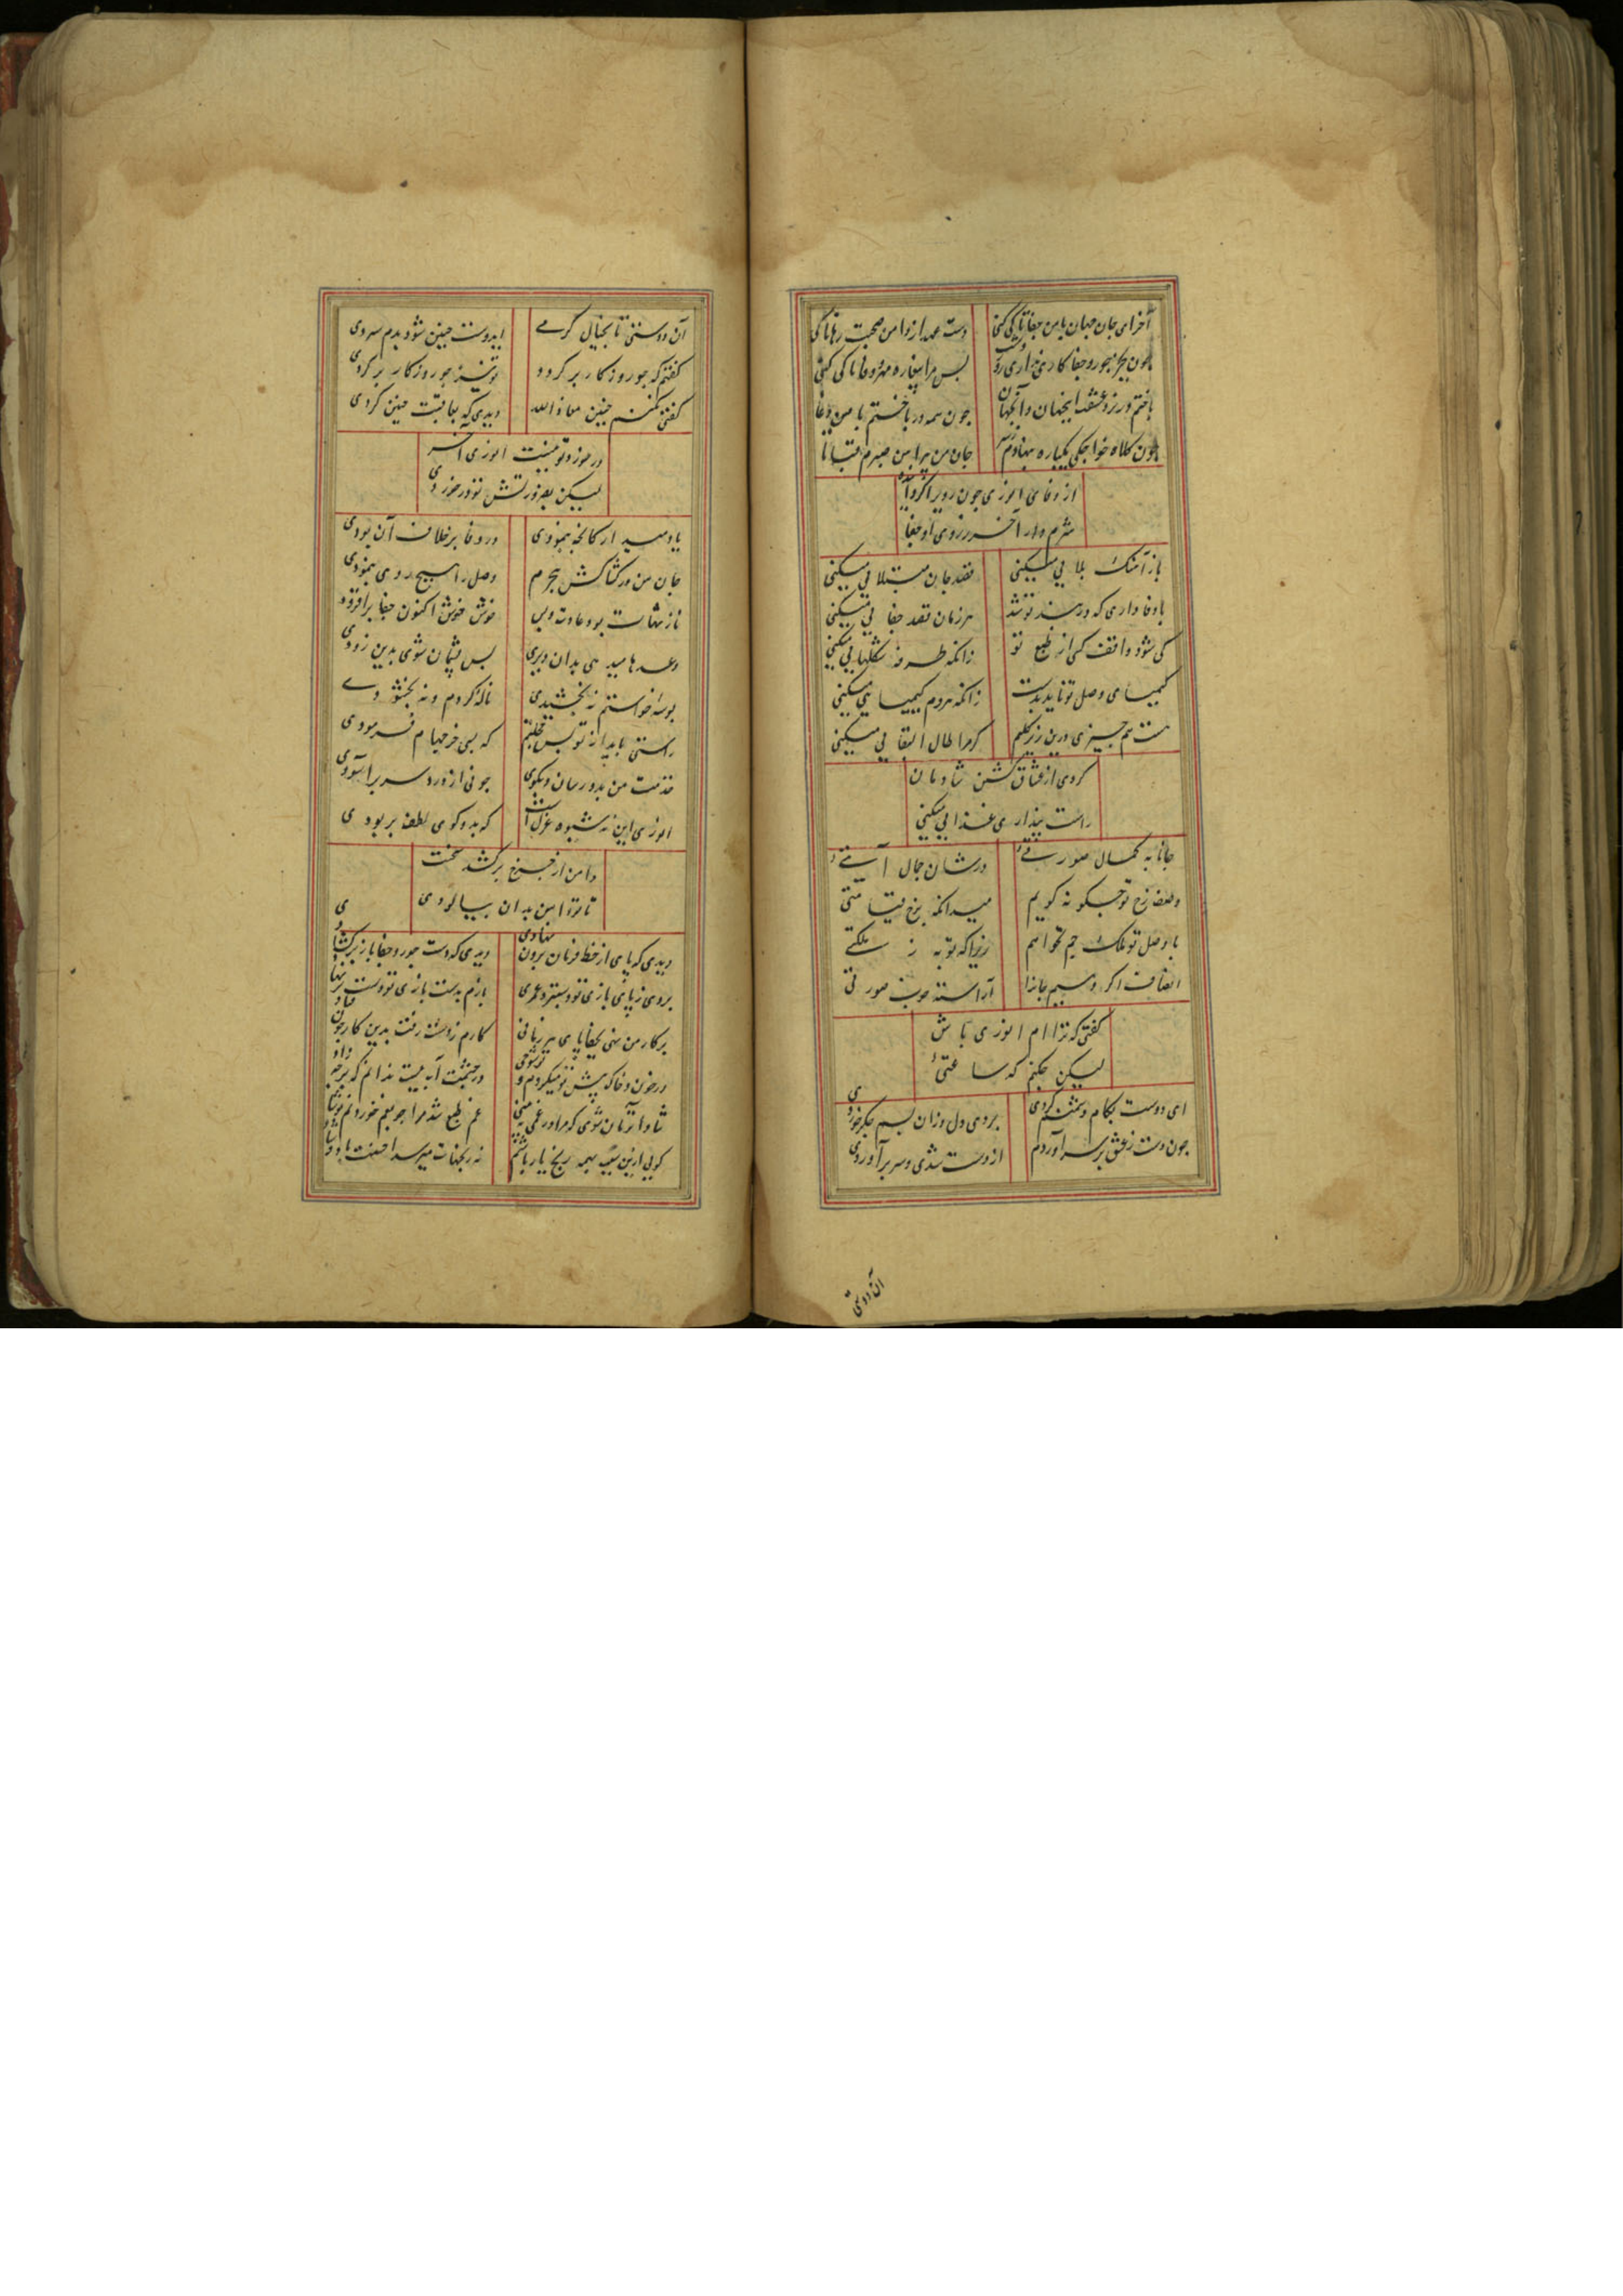 آخر ای جان جهان با من جفا تا کی کنی
دست عهد از دامن صحبت رها تا کی
چون بجز جور و جفا کاری نداری روز و شب
پس مرا بیغاره مهر و وفا تا کی کنی
باختم در نرد عشقت این جهان و آن جهان
چون همه درباختم با من دغا
چون کلاه خواجگی یکباره بنهادم ز سر
جان من پیراهن صبرم قبا تا
از وفای انوری چون روی برگردانده
شرم دار آخر ز روی او جفا
باز آهنگ بلایی میکنی
قصد جان مبتلایی میکنی
با وفاداری که در بند تو شد
هر زمان قصد جفایی میکنی
کی شود واقف کسی از طبع تو
زانکه طرفه شکلهایی میکنی
کیمیای وصل تو ناید بدست
زانکه هر دم کیمیایی میکنی
هست هم چیزی درین زیر گلیم
گر مرا طال البقایی میکنی
کردی از عشاق کشتن شادمان
راست پنداری غذایی میکنی
جانا به کمال صورتی
در شان جمال آیتی
وصف رخ تو چگونه گویم
میدانکه برخ قیامتی
با وصل تو ملک جم نخواهم
زیرا که تو به ز ملکتی
انصاف اگر دهیم جانا
آراسته خوب صورتی
گفتی که ترا ام انوری باش
لیکن چکنم که ساعتی
ای دوست بکام دشمنم کردی
بردی دل و زان بسم جگر خوردی
چون دست ز عشق بر سر آوردم
از دست شدی و سر برآوردی
آن دوستی
آن دوستی تا بخیال گرمی
ایدوست چنین شود بدم سردی
گفتم که چو روزگار برگردد
تو نیز چو روزگار برگردی
گفتی نکنم چنین معاذ الله
دیدی که بعاقبت چنین کردی
در خورد تو نیست انوری آخر
لیکن بضرورتش تو در خوردی
یاد میدار کانچه بنمودی
در وفا بر خلاف آن بودی
جان من در کشاکش هجرم
وصل را هیچ روی ننمودی
نازنهات بود عادت و بس
خوش خوش اکنون جفا برافزودی
وعدها میدهی بدان دیری
بس پشیمان شوی بدین زودی
بوسهٔ خواستم نه بخشیدی
ناله کردم و نه بخشودی
راستی باید از تو بس خجلم
که بسی خرجهام فرمودی
خدمت من بدو رسان و بگوی
چونی از درد سر برآسودی
انوری این نه شیوه غزل است
که بدو گوی لطف بربودی
دامن از چرخ برکشد سخنت
تا تو دامن بدان بیالودی
دیدی که پای از خط فرمان برون نهادی
دیدی که دست جور و جفا باز برگشادی
بردی ز پای بازی تو دستبرد عمری
بازم بدست بازی تو دست برنهادی
بر کار من نهی بجفا پای هر زمانی
کارم ز دست رفت بدین کار چون فتادی
در خون و خاک پیش تو میگردم و تو شوخی
در چشمت آب نیست ندانم که بر چه زادی
شاد آن زمان شوی که مرا در غمی ببینی
غم طبع شد مرا چو بغم خوردنم تو شادی
گویی ازین سپس همه رنج یار باشم
نه رنجهات میرسد احسنت باد و شادی